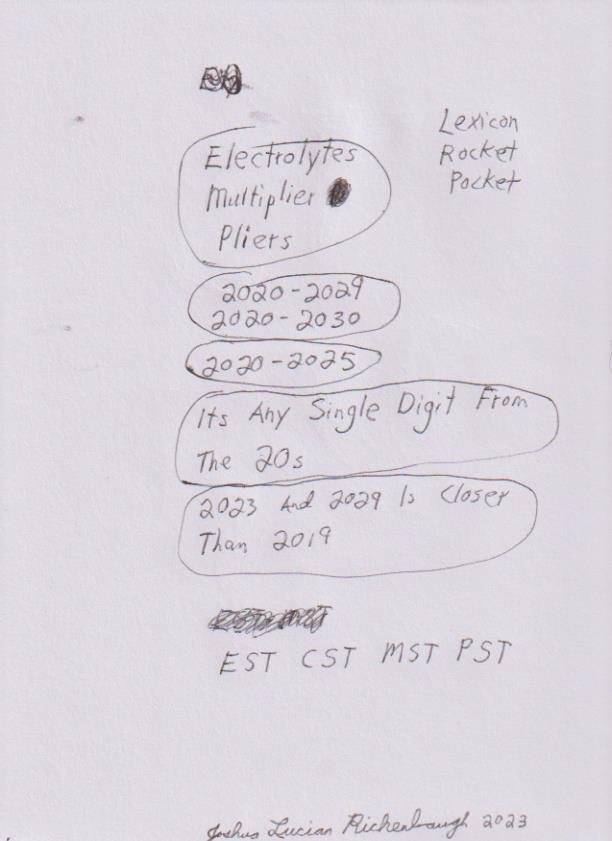 Lexicon
Rocket
Pocket
Electrolytes
Multiplier
Pliers
2020-2029
2020-2030
2020-2025
Its Any Single Digit From
The 20s
2023 And 2029 Is Closer
Than 2019
EST CST MST PST
Joshua Lucian Richenbaugh 2023